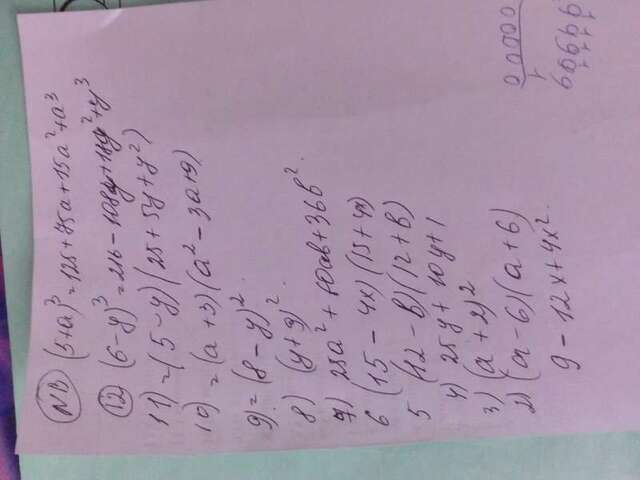 N13 (5+a)³ = 125+75a+15a²+a³
12 (6-y)³ = 216-108y+18y²+y³
11) = (5-y)(25+5y+y²)
10) = (a+3)(a²-3a+9)
9) = (8-y)²
8) (y+9)²
7) 25a²+10ab+36b²
6 (15-4x)(15+4x)
5 (12-b)(12+b)
4) 25y+10y+1
3) (a+2)²
2) (a-6)(a+6)
9-12x+4x²